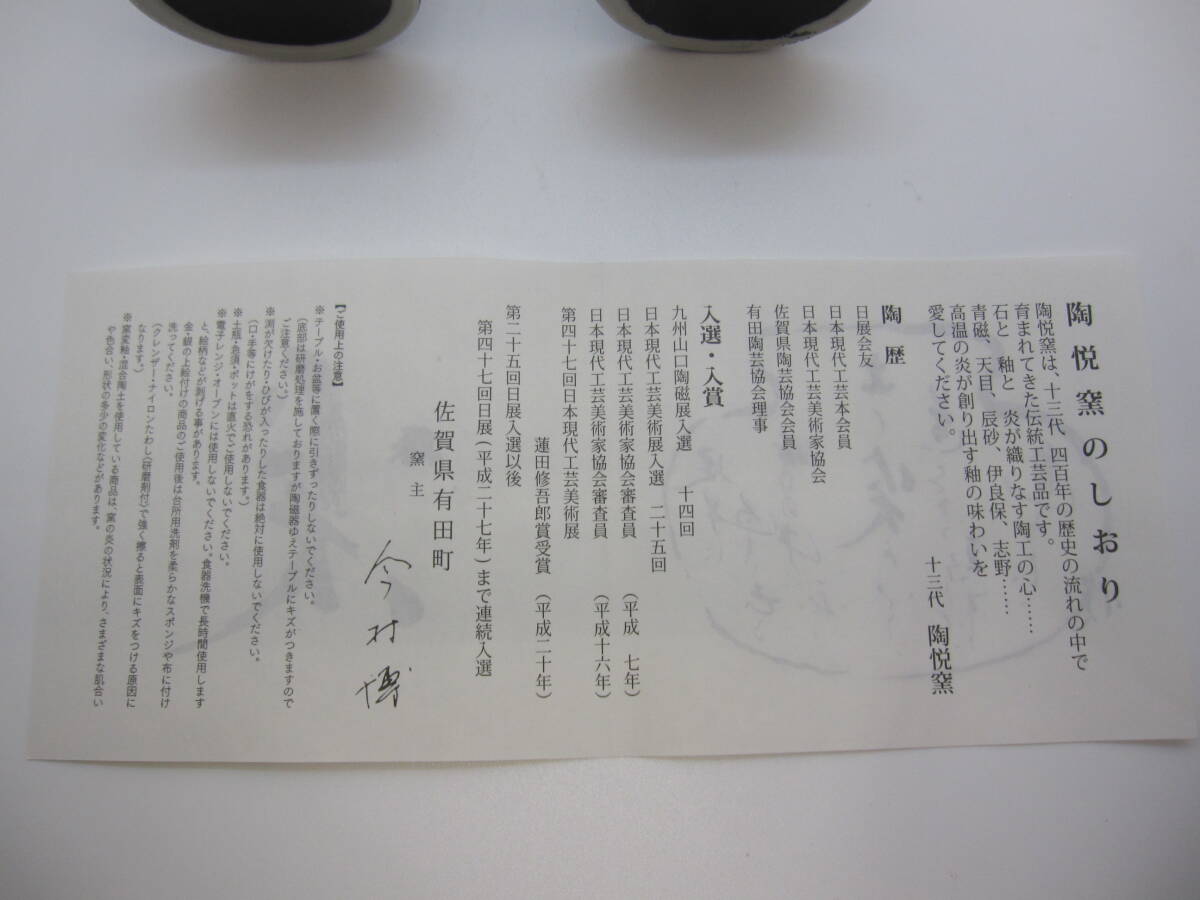 陶悦窯のしおり
陶悦窯は、十三代 四百年の歴史の流れの中で
育まれてきた伝統工芸品です。
石と 釉と 炎が織りなす陶工の心……
青磁、天目、辰砂、伊良保、志野……
高温の炎が創り出す釉の味わいを
愛してください。
十三代 陶悦窯
陶歴
日展会友
日本現代工芸本会員
日本現代工芸美術家協会
佐賀県陶芸協会会員
有田陶芸協会理事
入選・入賞
九州山口陶磁展入選 十四回
日本現代工芸美術展入選 二十五回
日本現代工芸美術家協会審査員 (平成 七年)
日本現代工芸美術家協会審査員 (平成十六年)
第四十七回日本現代工芸美術展
蓮田修吾郎賞受賞 (平成二十年)
第二十五回日展入選以後
第四十七回日展(平成二十七年)まで連続入選
佐賀県有田町
窯主 今村博
【ご使用上の注意】
※テーブル・お盆等に置く際に引きずったりしないでください。
(底部は研磨処理を施しておりますが陶磁器ゆえテーブルにキズがつきますので
ご注意ください。)
※渕が欠けたり・ひびが入ったりした食器は絶対に使用しないでください。
(口・手等にけがをする恐れがあります。)
※土瓶・急須・ポットは直火でご使用しないでください。
※電子レンジ・オーブンには使用しないでください。食器洗機で長時間使用します
と、絵柄などが剥げる事があります。
金・銀の上絵付けの商品のご使用後は台所用洗剤を柔らかなスポンジや布に付け
洗ってください。
(クレンザー・ナイロンたわし(研磨剤付)で強く擦ると表面にキズをつける原因に
なります。)
※窯変釉・混合陶土を使用している商品は、窯の炎の状況により、さまざまな肌合い
や色合い、形状の多少の変化などがあります。